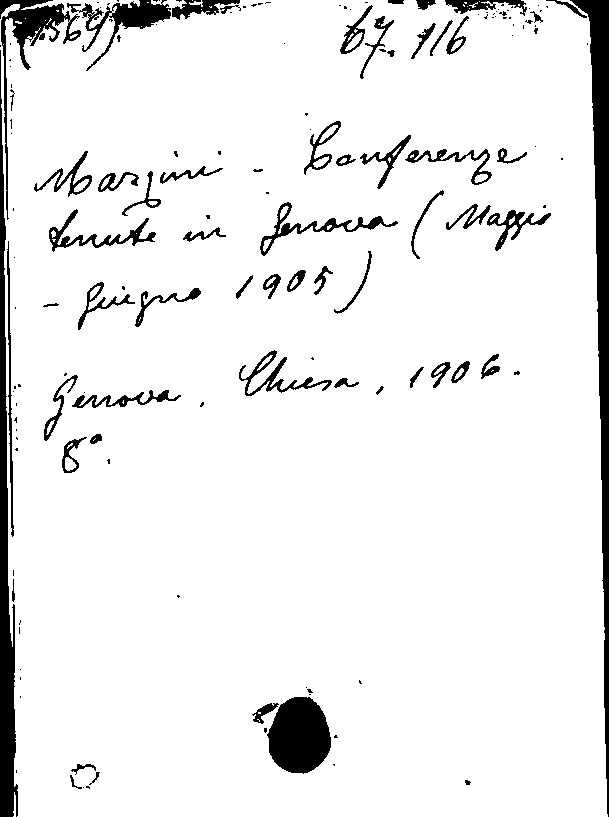 (1569)
67. 116
Mazzini - Conferenze
tenute in Genova (Maggio
- Giugno 1905)
Genova, Chiesa, 1906.
8°.